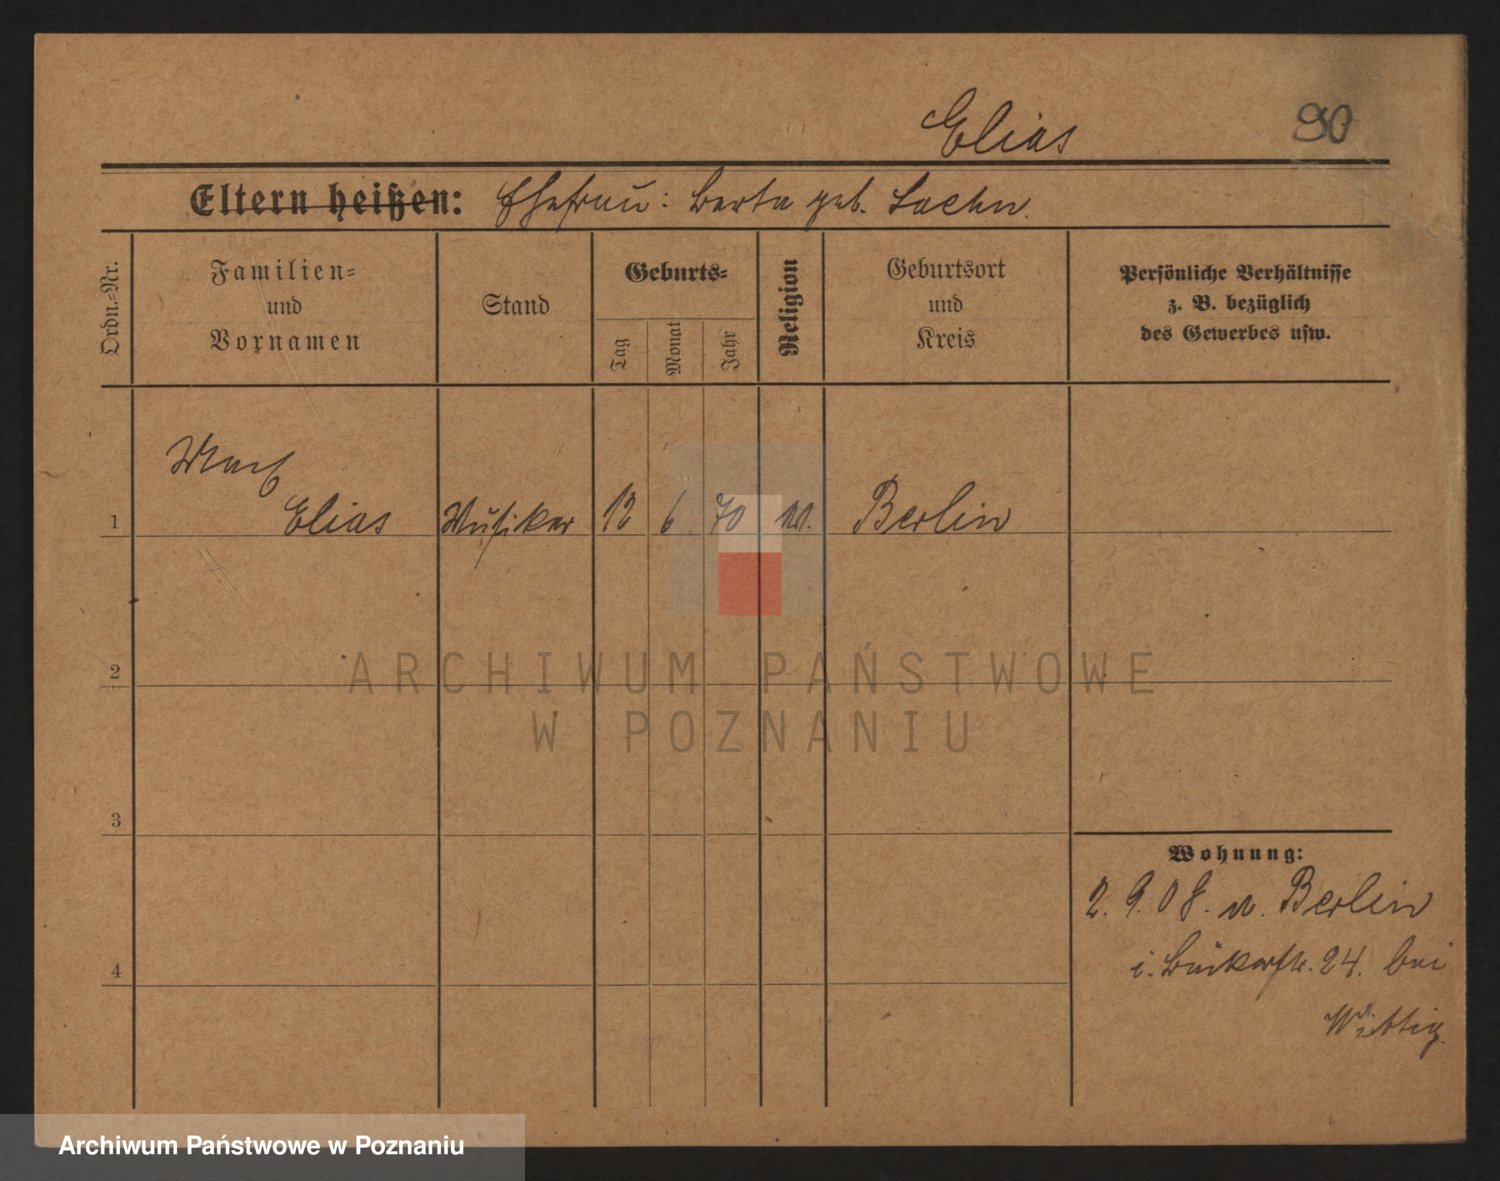 Elias
90
Eltern heißen: Ehefrau: Berta geb.
Ordn.=Nr.
Familien=
und
Vornamen
Stand
Geburts=
Tag
Monat
Jahr
Religion
Geburtsort
und
Kreis
Persönliche Verhältnisse
z. B. bezüglich
des Gewerbes usw.
1
Elias Musiker 12 6. 70 Berlin
2
3
4
Wohnung:
2. 9. 08. v. Berlin
i. Bäckerstr. 24. bei
Wittig
ARCHIWUM PAŃSTWOWE
W POZNANIU
Archiwum Państwowe w Poznaniu